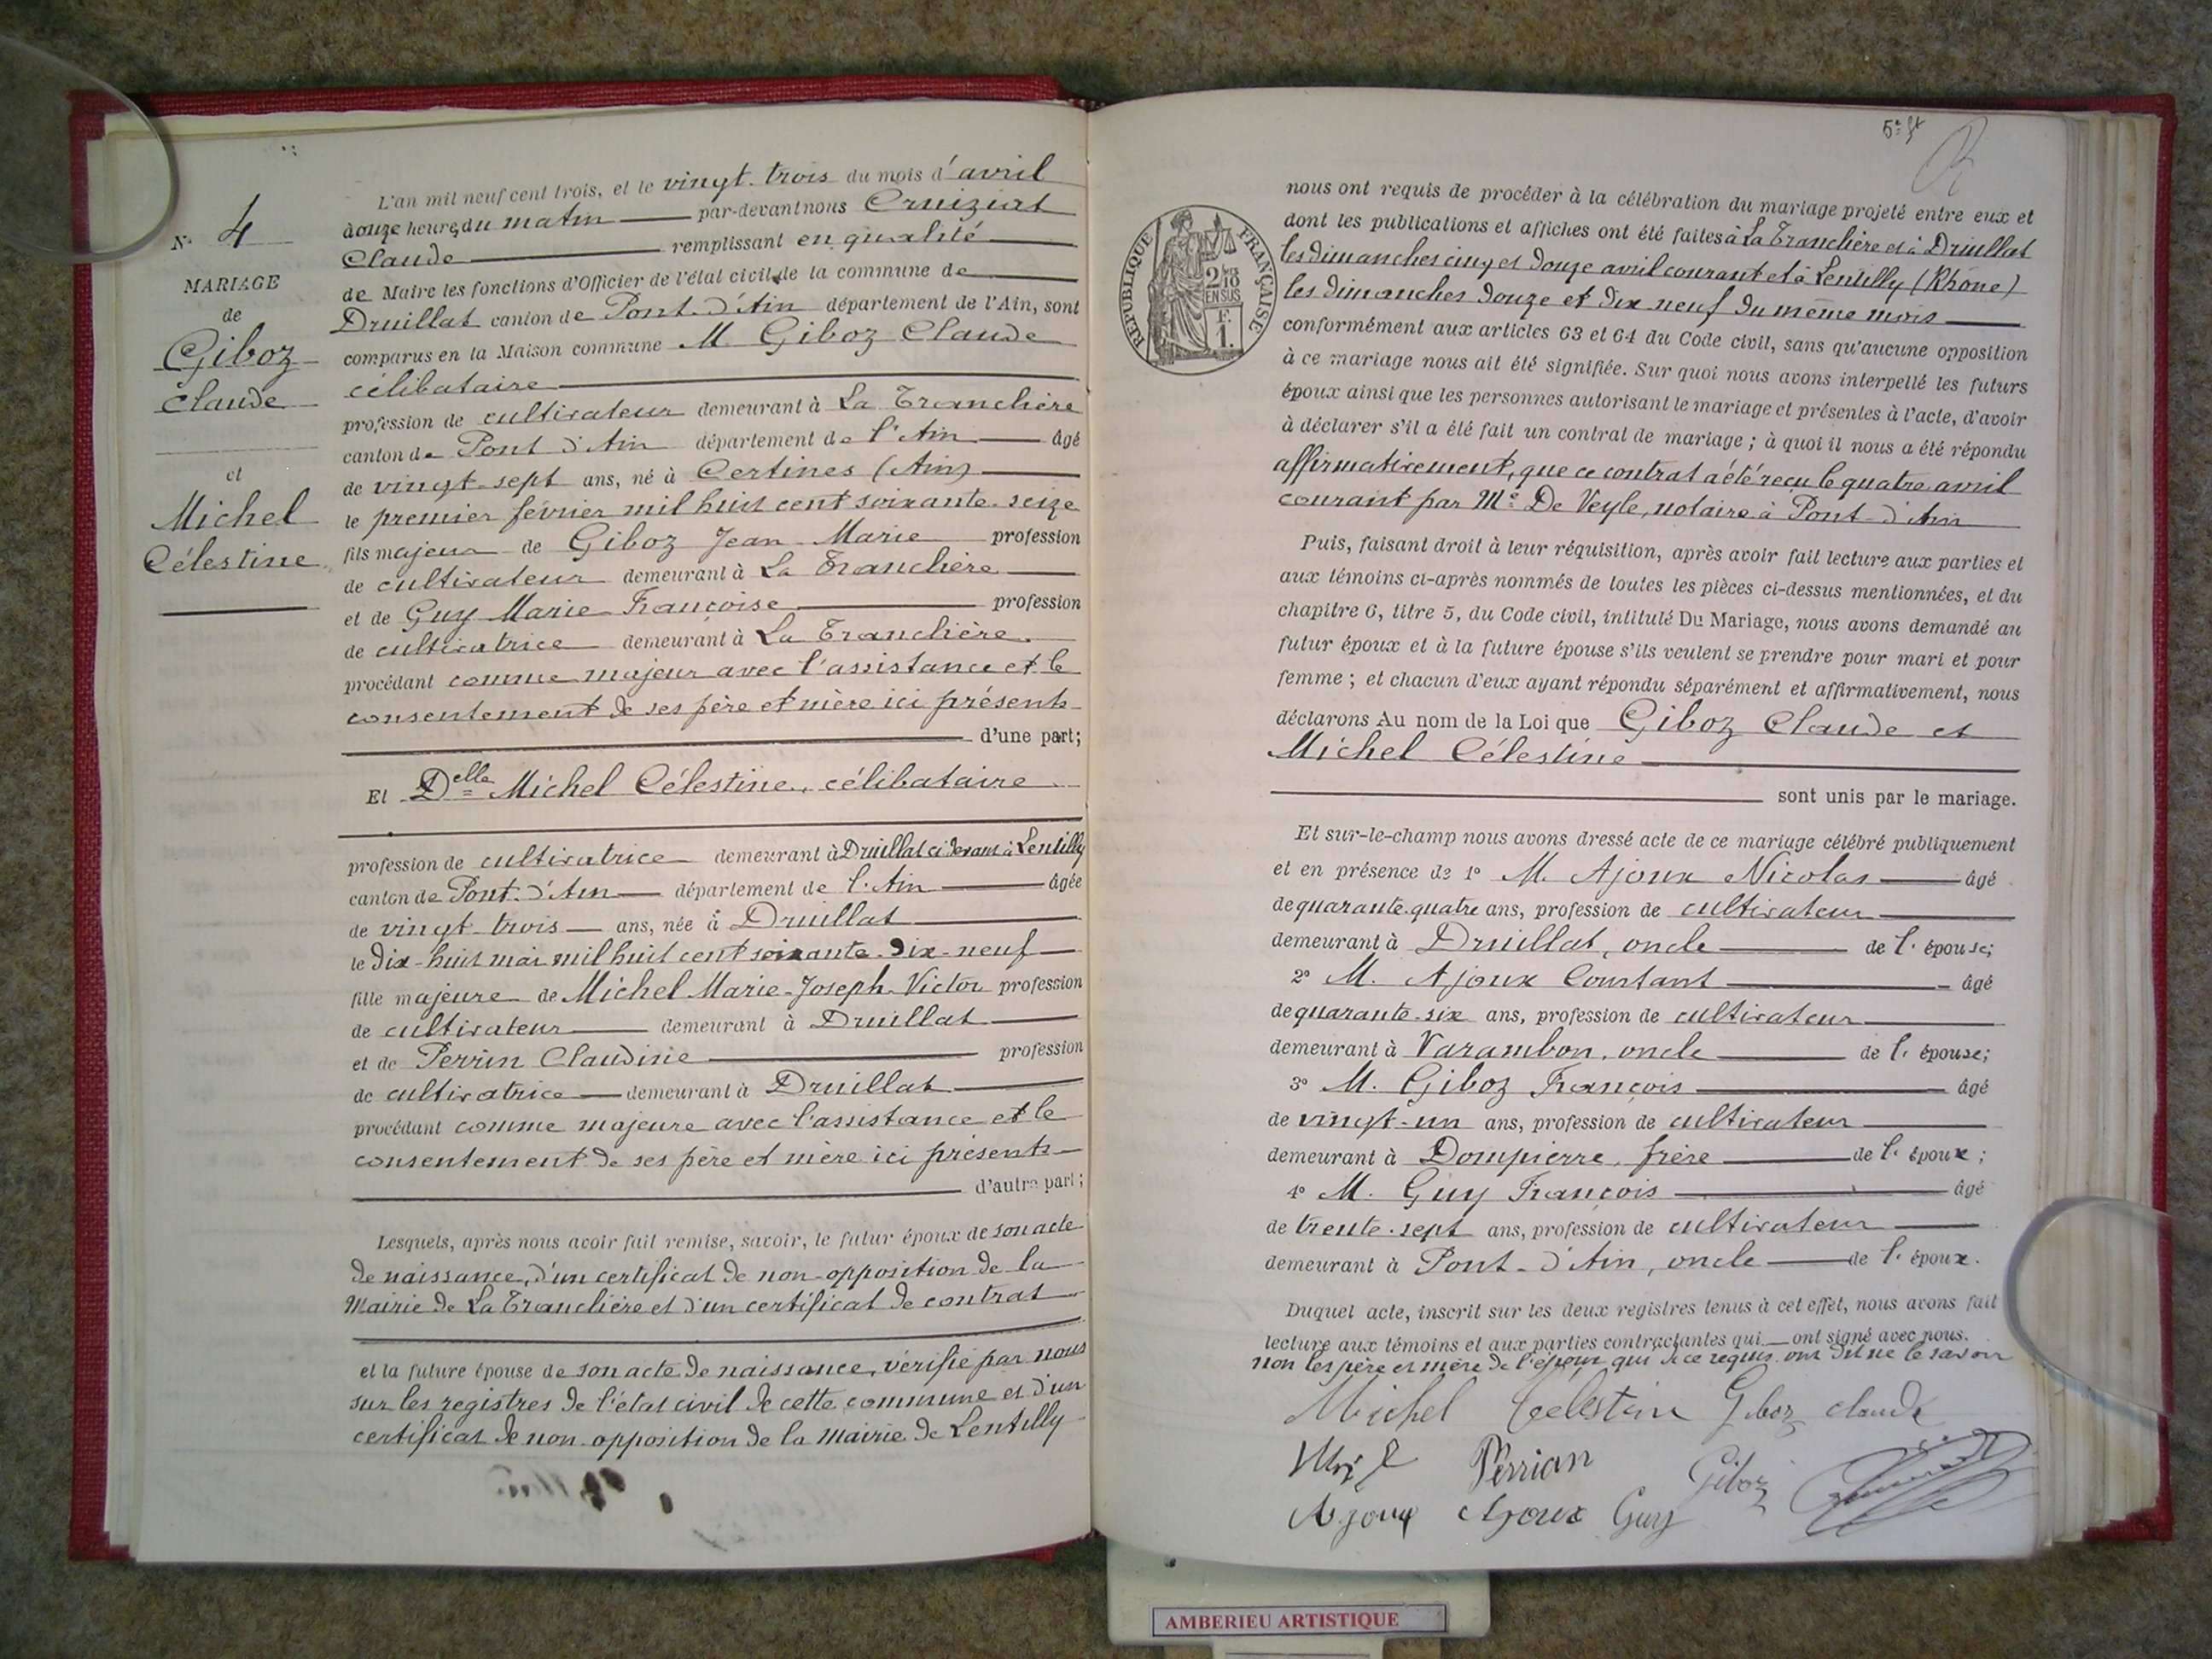 N° 4
MARIAGE
de
Giboz
Claude
et
Michel
Célestine
L'an mil neuf cent trois, et le vingt-trois du mois d'avril
à onze heures du matin par-devant nous Cruiziat
Claude remplissant en qualité
de Maire les fonctions d'Officier de l'état civil de la commune de
Druillat canton de Pont-d'Ain département de l'Ain, sont
comparus en la Maison commune M. Giboz Claude
célibataire
profession de cultivateur demeurant à La Tranclière
canton de Pont d'Ain département de l'Ain âgé
de vingt-sept ans, né à Certines (Ain)
le premier février mil huit cent soixante-seize
fils majeur de Giboz Jean-Marie profession
de cultivateur demeurant à La Tranclière
et de Guy Marie-Françoise profession
de cultivatrice demeurant à La Tranclière.
procédant comme majeur avec l'assistance et le
consentement de ses père et mère ici présents
d'une part;
Et Delle Michel Célestine, célibataire
profession de cultivatrice demeurant à Druillat ci devant à Lentilly
canton de Pont-d'Ain département de l'Ain âgée
de vingt-trois ans, née à Druillat
le dix-huit mai mil huit cent soixante-dix-neuf
fille majeure de Michel Marie-Joseph-Victor profession
de cultivateur demeurant à Druillat
et de Perrin Claudine profession
de cultivatrice demeurant à Druillat
procédant comme majeure avec l'assistance et le
consentement de ses père et mère ici présents
d'autre part;
Lesquels, après nous avoir fait remise, savoir, le futur époux de son acte
de naissance, d'un certificat de non-opposition de la
Mairie de La Tranclière et d'un certificat de contrat
et la future épouse de son acte de naissance, vérifié par nous
sur les registres de l'état civil de cette commune et d'un
certificat de non-opposition de la Mairie de Lentilly
5e ft
RÉPUBLIQUE FRANÇAISE
2/10
EN SUS
F.
1.
nous ont requis de procéder à la célébration du mariage projeté entre eux et
dont les publications et affiches ont été faites à La Tranclière et à Druillat
les dimanches cinq et douze avril courant et à Lentilly (Rhône)
les dimanches douze et dix-neuf du même mois
conformément aux articles 63 et 64 du Code civil, sans qu'aucune opposition
à ce mariage nous ait été signifiée. Sur quoi nous avons interpellé les futurs
époux ainsi que les personnes autorisant le mariage et présentes à l'acte, d'avoir
à déclarer s'il a été fait un contrat de mariage; à quoi il nous a été répondu
affirmativement, que ce contrat a été reçu le quatre avril
courant par Me De Veyle, notaire à Pont-d'Ain
Puis, faisant droit à leur réquisition, après avoir fait lecture aux parties et
aux témoins ci-après nommés de toutes les pièces ci-dessus mentionnées, et du
chapitre 6, titre 5, du Code civil, intitulé Du Mariage, nous avons demandé au
futur époux et à la future épouse s'ils veulent se prendre pour mari et pour
femme; et chacun d'eux ayant répondu séparément et affirmativement, nous
déclarons Au nom de la Loi que Giboz Claude et
Michel Célestine
sont unis par le mariage.
Et sur-le-champ nous avons dressé acte de ce mariage célébré publiquement
et en présence de 1° M. Ajoux Nicolas âgé
de quarante-quatre ans, profession de cultivateur
demeurant à Druillat, oncle de l'épouse;
2° M. Ajoux Constant âgé
de quarante-six ans, profession de cultivateur
demeurant à Varambon, oncle de l'épouse;
3° M. Giboz François âgé
de vingt-un ans, profession de cultivateur
demeurant à Dompierre, frère de l'époux;
4° M. Guy François âgé
de trente-sept ans, profession de cultivateur
demeurant à Pont-d'Ain, oncle de l'époux.
Duquel acte, inscrit sur les deux registres tenus à cet effet, nous avons fait
lecture aux témoins et aux parties contractantes qui ont signé avec nous.
non les père et mère de l'époux qui de ce requis ont dit ne le savoir
Michel Celestine Giboz claude
Perrian Giboz
Ajoux Ajoux Guy
AMBERIEU ARTISTIQUE